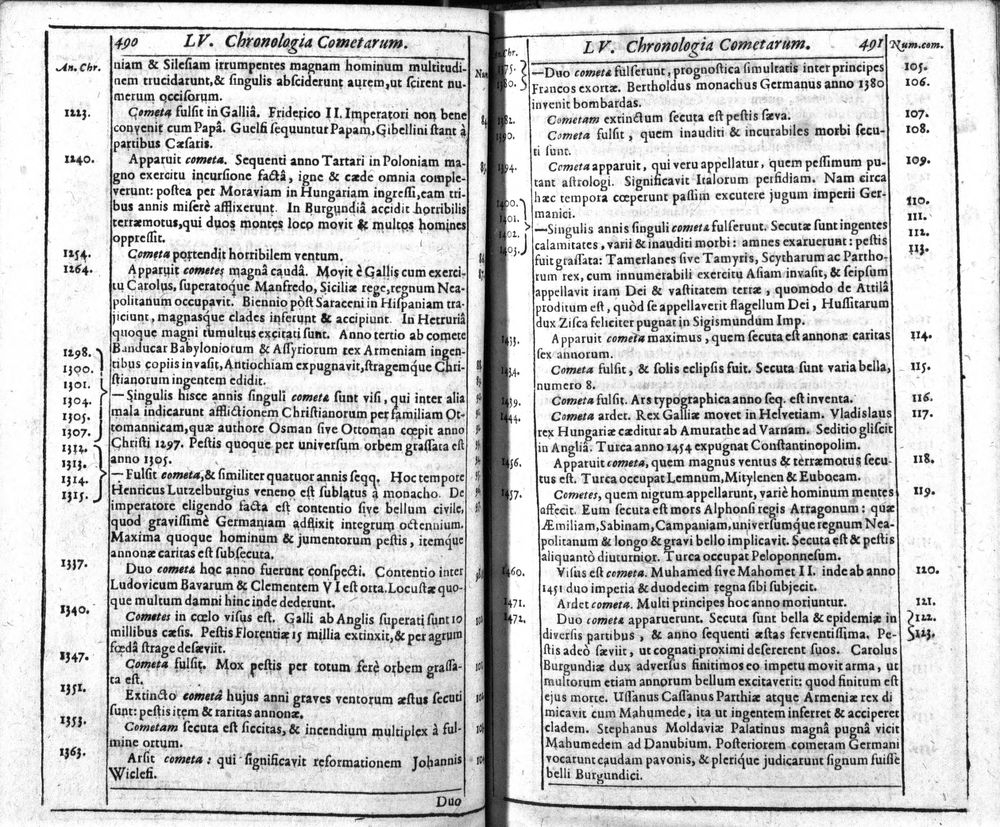 490 LV. Chronologia Cometarum.
An. Chr.
niam & Silesiam irrumpentes magnam hominum multitudi-
nem trucidarunt, & singulis absciderunt aurem, ut scirent nu-
merum occisorum.
1223. Cometa fulsit in Galliâ. Friderico II. Imperatori non bene
convenit cum Papâ. Guelfi sequuntur Papam, Gibellini stant à
partibus Cæsaris.
1240. Apparuit cometa. Sequenti anno Tartari in Poloniam ma-
gno exercitu incursione factâ, igne & cæde omnia comple-
verunt: postea per Moraviam in Hungariam ingressi, eam tri-
bus annis miserè afflixerunt. In Burgundiâ accidit horribilis
terræmotus, qui duos montes loco movit & multos homines
oppressit.
1254. Cometa portendit horribilem ventum.
1264. Apparuit cometes magnâ caudâ. Movit è Gallis cum exerci-
tu Carolus, superatoque Manfredo, Siciliæ rege, regnum Nea-
politanum occupavit. Biennio pòst Saraceni in Hispaniam tra-
jiciunt, magnasque clades inferunt & accipiunt. In Hetruriâ
quoque magni tumultus excitati sunt. Anno tertio ab comete
Banducar Babyloniorum & Assyriorum rex Armeniam ingen-
tibus copiis invasit, Antiochiam expugnavit, stragemque Chri-
stianorum ingentem edidit.
1298.
1300.
1301.
1304.
1305.
1307.
—Singulis hisce annis singuli cometæ sunt visi, qui inter alia
mala indicarunt afflictionem Christianorum per familiam Ot-
tomannicam, quæ authore Osman sive Ottoman cœpit anno
Christi 1297. Pestis quoque per universum orbem grassata est
anno 1305.
1312.
1313.
1314.
1315.
—Fulsit cometa, & similiter quatuor annis seqq. Hoc tempore
Henricus Lutzelburgius veneno est sublatus à monacho. De
imperatore eligendo facta est contentio sive bellum civile,
quod gravissimè Germaniam adflixit integrum octennium.
Maxima quoque hominum & jumentorum pestis, itemque
annonæ caritas est subsecuta.
1337. Duo cometæ hoc anno fuerunt conspecti. Contentio inter
Ludovicum Bavarum & Clementem VI est orta. Locustæ quo-
que multum damni hinc inde dederunt.
1340. Cometes in cœlo visus est. Galli ab Anglis superati sunt 10
millibus cæsis. Pestis Florentiæ 15 millia extinxit, & per agrum
fœdâ strage desæviit.
1347. Cometa fulsit. Mox pestis per totum ferè orbem grassa-
ta est.
1351. Extincto cometâ hujus anni graves ventorum æstus secuti
sunt: pestis item & raritas annonæ.
1353. Cometam secuta est siccitas, & incendium multiplex à ful-
mine ortum.
1363. Arsit cometa: qui significavit reformationem Johannis
Wiclefi.
Duo
LV. Chronologia Cometarum. 491
Num. com.
1375.
1380.
—Duo cometæ fulserunt, prognostica simultatis inter principes 105.
Francos exortæ. Bertholdus monachus Germanus anno 1380 106.
invenit bombardas.
1382. Cometam extinctum secuta est pestis sæva. 107.
1390. Cometa fulsit, quem inauditi & incurabiles morbi secu- 108.
ti sunt.
1394. Cometa apparuit, qui veru appellatur, quem pessimum pu- 109.
tant astrologi. Significavit Italorum perfidiam. Nam circa
hæc tempora cœperunt passim excutere jugum imperii Ger-
manici.
1400.
1401.
1402.
1403.
110.
111.
112.
113.
—Singulis annis singuli cometæ fulserunt. Secutæ sunt ingentes
calamitates, varii & inauditi morbi: amnes exaruerunt: pestis
fuit grassata: Tamerlanes sive Tamyris, Scytharum ac Partho-
rum rex, cum innumerabili exercitu Asiam invasit, & seipsum
appellavit iram Dei & vastitatem terræ, quomodo de Attilâ
proditum est, quòd se appellaverit flagellum Dei, Hussitarum
dux Zisca feliciter pugnat in Sigismundum Imp.
1433. Apparuit cometa maximus, quem secuta est annonæ caritas 114.
sex annorum.
1434. Cometa fulsit, & solis eclipsis fuit. Secuta sunt varia bella, 115.
numero 8.
1439. Cometa fulsit. Ars typographica anno seq. est inventa. 116.
1444. Cometa ardet. Rex Galliæ movet in Helvetiam. Vladislaus 117.
rex Hungariæ cæditur ab Amurathe ad Varnam. Seditio gliscit
in Angliâ. Turca anno 1454 expugnat Constantinopolim.
1456. Apparuit cometa, quem magnus ventus & terræmotus secu- 118.
tus est. Turca occupat Lemnum, Mitylenen & Euboeam.
1457. Cometes, quem nigrum appellarunt, variè hominum mentes 119.
affecit. Eum secuta est mors Alphonsi regis Arragonum: quæ
Æmiliam, Sabinam, Campaniam, universumque regnum Nea-
politanum & longo & gravi bello implicavit. Secuta est & pestis
aliquantò diuturnior. Turca occupat Peloponnesum.
1460. Visus est cometa. Muhamed sive Mahomet II. inde ab anno 120.
1451 duo imperia & duodecim regna sibi subjecit.
1471. Ardet cometa. Multi principes hoc anno moriuntur. 121.
1472. Duo cometæ apparuerunt. Secuta sunt bella & epidemiæ in 122.
diversis partibus, & anno sequenti æstas ferventissima. Pe- 123.
stis adeò sæviit, ut cognati proximi desererent suos. Carolus
Burgundiæ dux adversus finitimos eo impetu movit arma, ut
multorum etiam annorum bellum excitaverit: quod finitum est
ejus morte. Ussanus Cassanus Parthiæ atque Armeniæ rex di
micavit cum Mahumede, ita ut ingentem inferret & acciperet
cladem. Stephanus Moldaviæ Palatinus magnâ pugnâ vicit
Mahumedem ad Danubium. Posteriorem cometam Germani
vocarunt caudam pavonis, & plerique judicarunt signum fuisse
belli Burgundici.